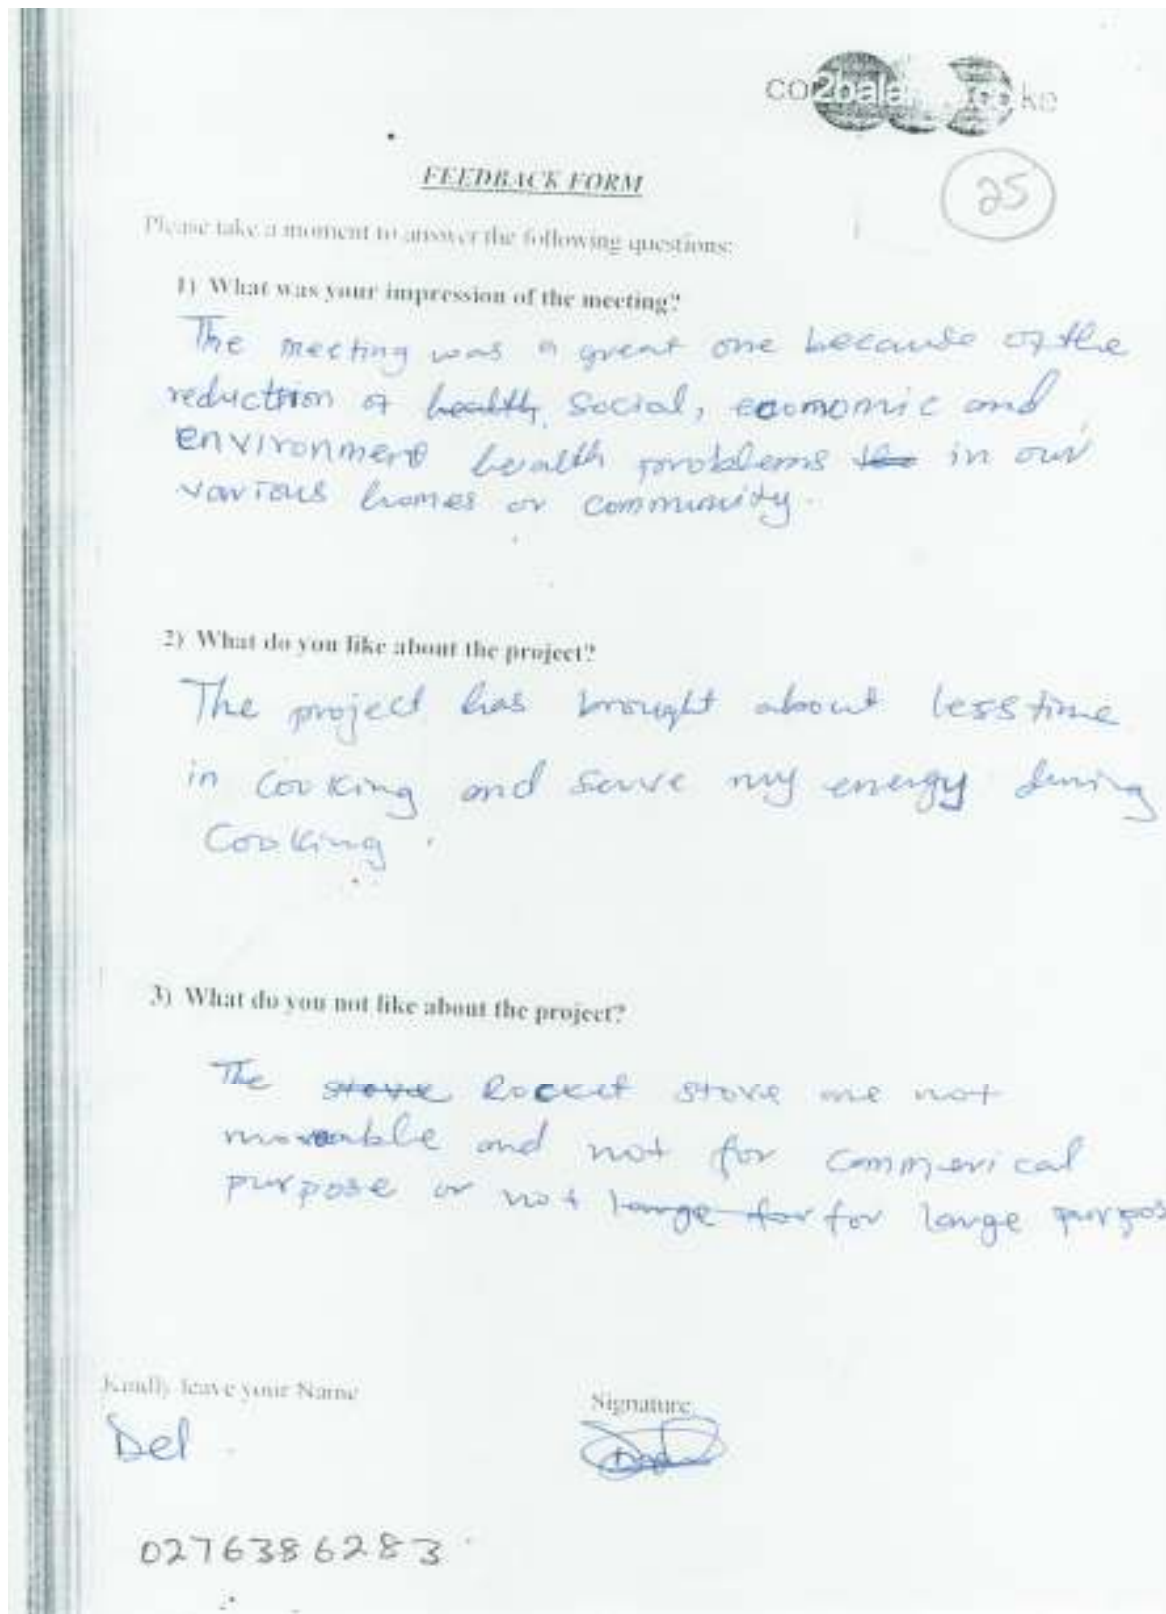 co2balance.co.ke
FEEDBACK FORM
25
Please take a moment to answer the following questions:
1) What was your impression of the meeting?
The meeting was a great one because of the
reduction of health, social, economic and
environment health problems the in our
various homes or community.
2) What do you like about the project?
The project has brought about less time
in cooking and save my energy during
Cooking.
3) What do you not like about the project?
The stove Rocket stove are not
moveable and not for commerical
purpose or not large for for large purpos
Kindly leave your Name
Signature
Del
0276386283